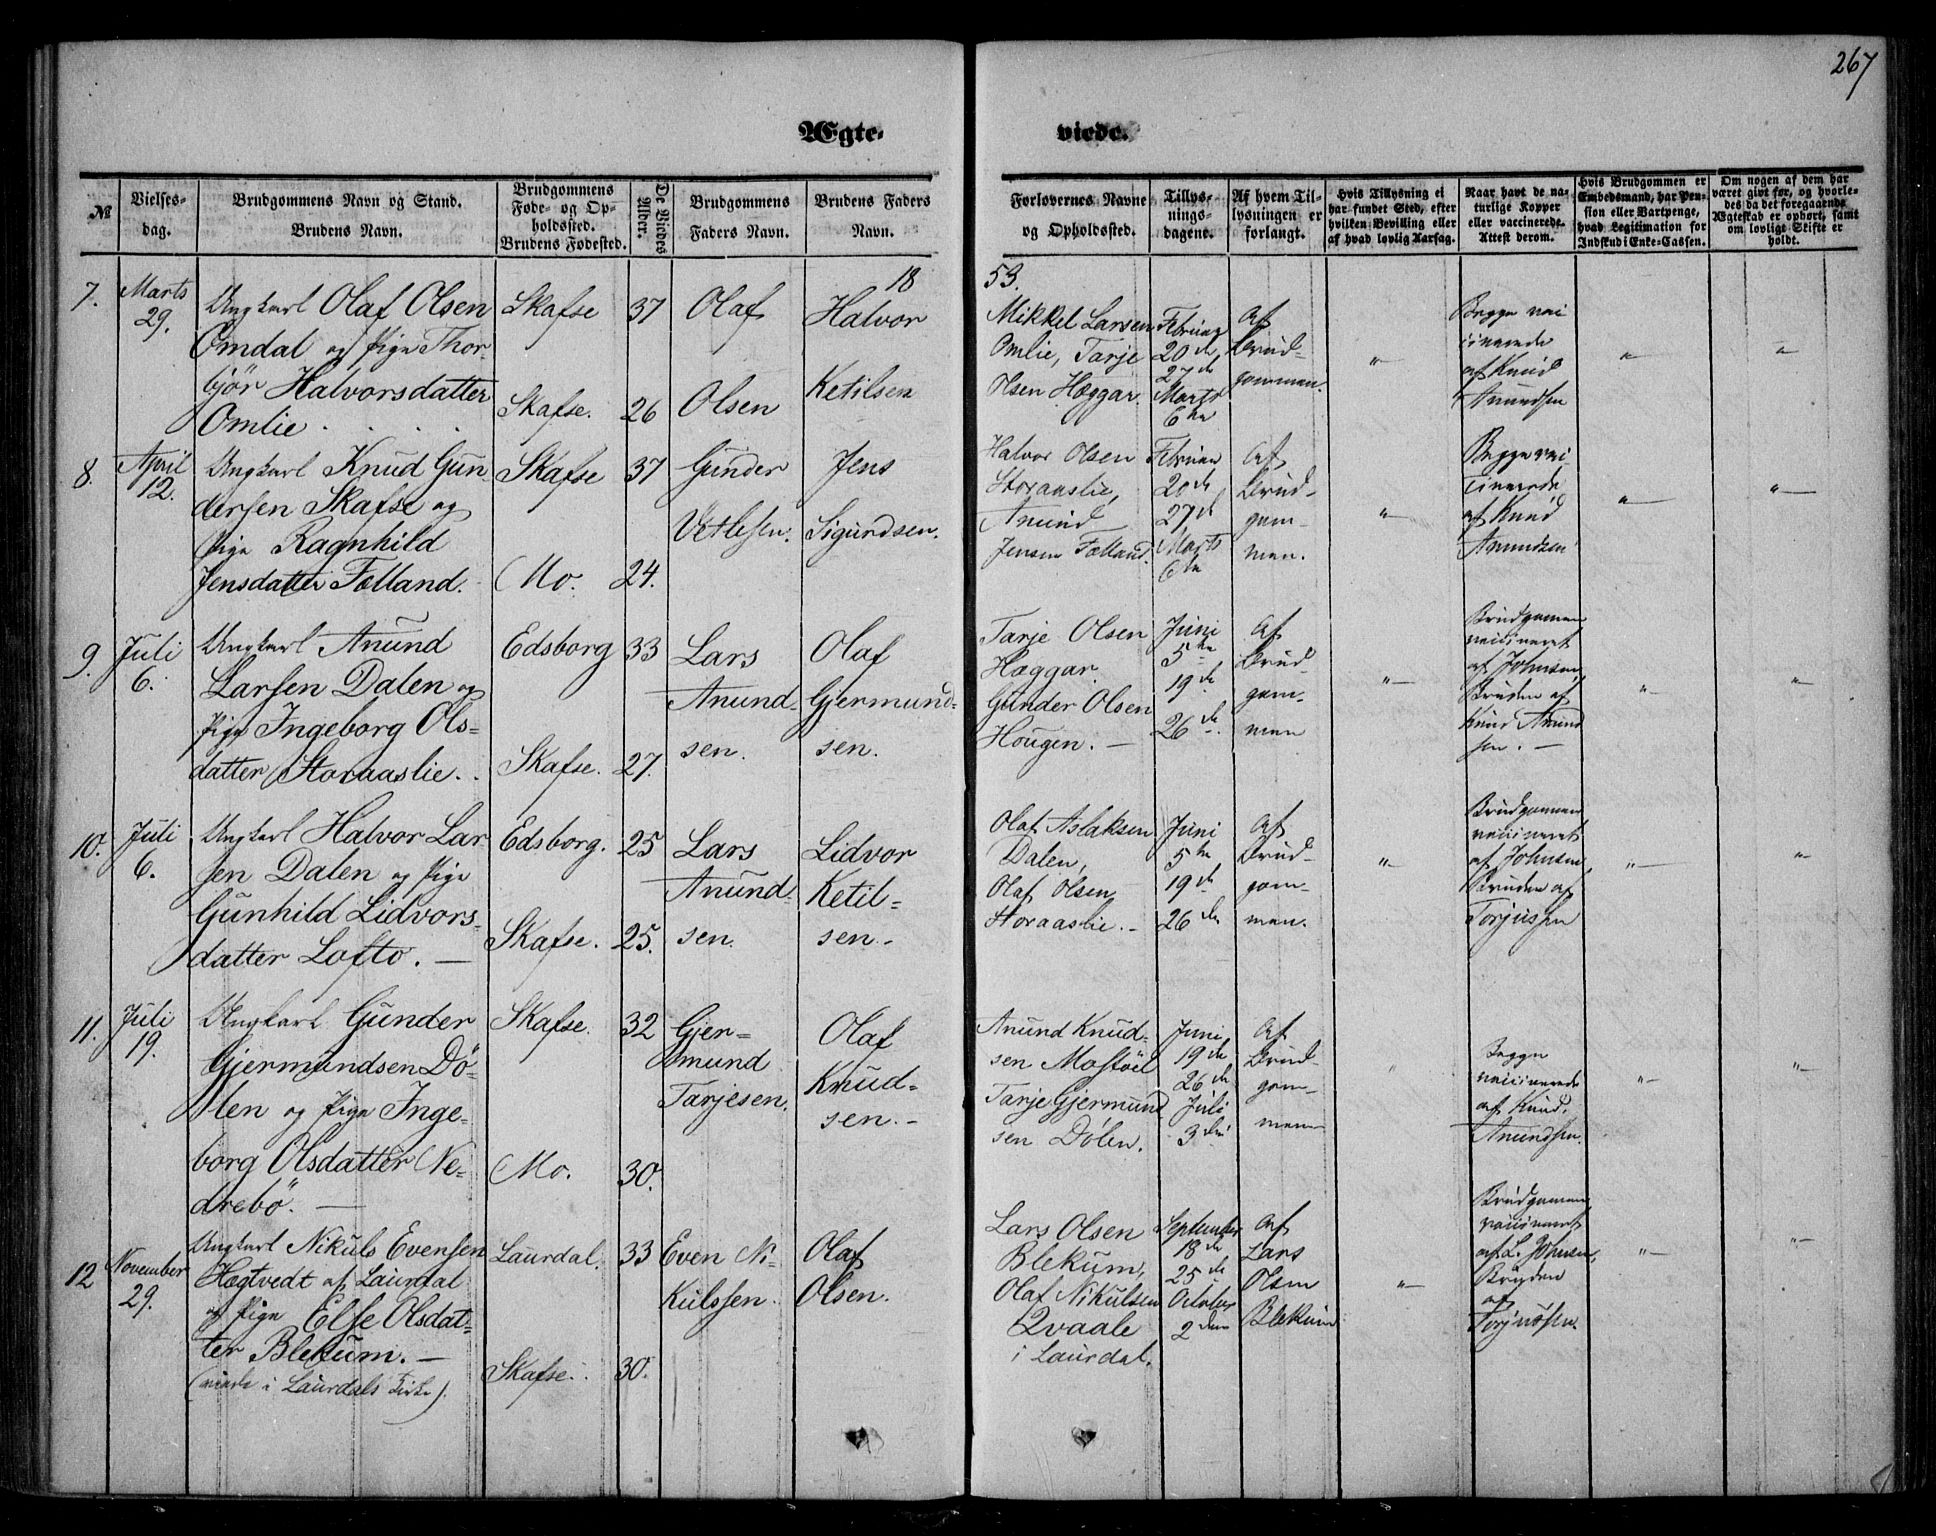 267
Ægte-
viede.
№
Vielses-
dag.
Brudgommens Navn og Stand.
Brudens Navn.
Brudgommens
Føde- og Op-
holdssted.
Brudens Fødested.
De Viedes
Alder.
Brudgommens
Faders Navn.
Brudens Faders
Navn.
Forlovernes Navne
og Opholdssted.
Tillys-
nings-
dagene.
Af hvem Til-
lysningen er
forlangt.
Hvis Tillysning ei
har fundet Sted, efter
hvilken Bevilling eller
af hvad lovlig Aarsag.
Naar havt de na-
turlige Kopper
eller vaccinerede.
Attest derom.
Hvis Brudgommen er
Embedsmand, har Pen-
sion eller Vartpenge,
hvad Legitimation for
Indskud i Enke-Cassen.
Om nogen af dem har
været givt før, og hvorle-
des da det foregaaende
Ægteskab er ophørt, samt
om lovligt Skifte er
holdt.
18
53.
7.
Marts
29.
Ungkarl Olaf Olsen
Omdal og Pige Thor-
björ Halvorsdatter
Omlie . . . .
Skafse
Skafse.
37
26
Olaf
Olsen
Halvor
Ketilsen
Mikkel Larsen
Omlie, Tarje
Olsen Hæggar.
Februar
20de,
27de
Marts
6te
Af
Brud-
gommen.
"
Begge vac
cinerede
af Knud
Anundsen
"
"
8.
April
12.
Ungkarl Knud Gun
dersen Skafse og
Pige Ragnhild
Jensdatter Fælland.
Skafse
Mo.
37
24.
Gunder
Vetlesen.
Jens
Sigurdsen.
Halvor Olsen
Storaaslie,
Anund
Jensen Fælland.
Februar
20de
27de
Marts
6te
Af
Brud-
gom-
men.
"
Begge vac
cinerede
af Knud
Anundsen
"
"
9.
Juli
6.
Ungkarl Anund
Larsen Dalen og
Pige Ingeborg Ols-
datter Storaaslie.
Edsborg
Skafse.
33
27.
Lars
Anund-
sen.
Olaf
Gjermund-
sen.
Tarje Olsen
Hæggar.
Gunder Olsen
Hougen. —
Juni
5te
19de
26de.
Af
Brud
gom-
men
"
Brudgommen
vaccineret
af Johnsen,
Bruden af
Knud Anund
sen. —
"
"
10.
Juli
6.
Ungkarl Halvor Lar
sen Dalen og Pige
Gunhild Lidvors-
datter Lofto. —
Edsborg.
Skafse.
25
25.
Lars
Anund-
sen.
Lidvor
Ketil-
sen.-
Olaf Aslaksen
Dalen,
Olaf Olsen
Storaaslie. -
Juni
5te
19de
26de
Af
Brud-
gom-
men.
"
Brudgommen
vaccineret
af Johnsen,
Bruden af
Torjussen
"
"
11.
Juli
19.
Ungkarl Gunder
Gjermundsen Dö-
len og Pige Inge-
borg Olsdatter Ne-
drebö. —
Skafse.
Mo.
32
30.
Gjer-
mund
Tarjesen.
Olaf
Knud-
sen.-
Anund Knud-
sen Mostöel
Tarje Gjermund
sen Dölen.
Juni
19de
26de
Juli
3die
Af
Brud-
gom-
men
"
Begge
vaccinerede
af Knud.
Anundsen.
"
"
12
November
29.
Ungkarl Nikuls Evensen
Hægtvedt af Laurdal
og Pige Else Olsdat-
ter Blekum. —
(viede i Laurdals Kirke).
Laurdal.
Skafse.
33
30.
Even Ni-
kulssen.
Olaf
Olsen.
Lars Olsen
Blekum,
Olaf Nikulsen
Qvaale
i Laurdal.
September
18de
25de
October
2den
Af
Lars
Olsen
Blekum
"
Brudgommen
vaccineret
af L. Johnsen,
Bruden
af
Torjussen.
"
"